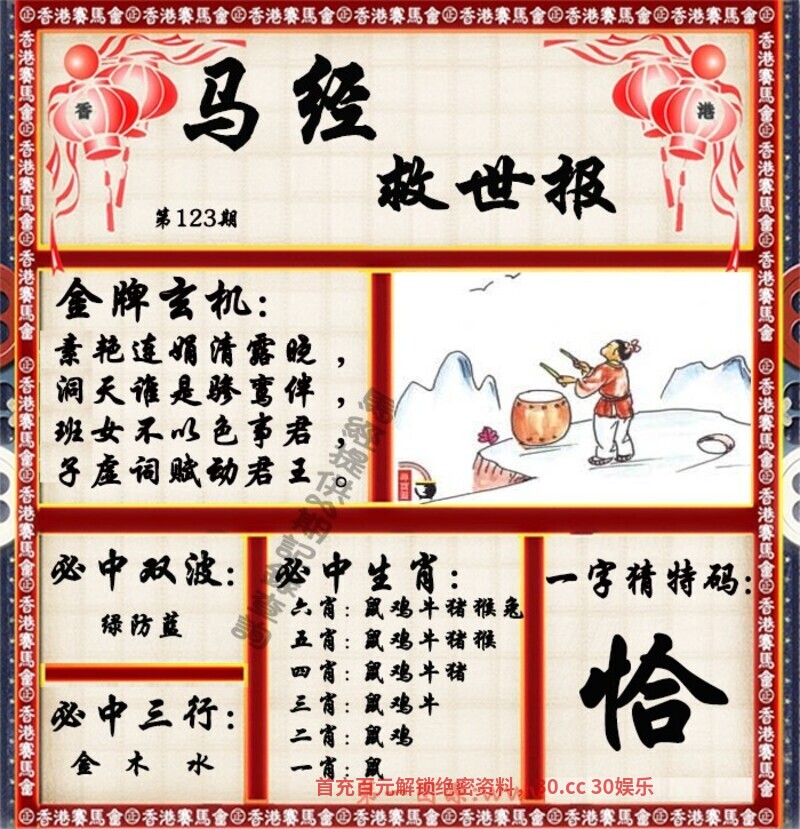 香港賽馬會 香港賽馬會 香港賽馬會 香港賽馬會 香港賽馬會 香港賽馬會
香 港
马经
救世报
第123期
金牌玄机:
素艳连娟清露晓,
洞天谁是骖鸾伴,
班女不以色事君,
子虚词赋动君王。
必中双波:
绿防蓝
必中三行:
金 木 水
必中生肖:
六肖:鼠鸡牛猪猴兔
五肖:鼠鸡牛猪猴
四肖:鼠鸡牛猪
三肖:鼠鸡牛
二肖:鼠鸡
一肖:鼠
一字猜特码:
恰
首充百元解锁绝密资料,
30.cc 30娱乐